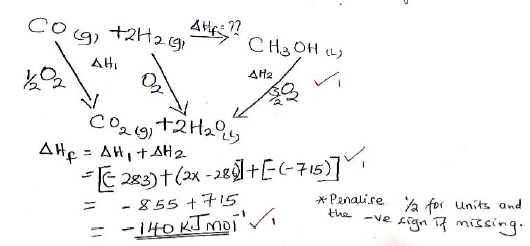 CO (g) + 2H2 (g) ΔHf = ?? → CH3OH (L)
ΔH1 ΔH2
½O2 O2 3/2O2 ✓1
CO2 (g) + 2H2O (L)
ΔHf = ΔH1 + ΔH2
= [(- 283) + (2x -286)] + [-(-715)] ✓1
= - 855 + 715
= -140 KJ mol⁻¹ ✓1
*Penalise ½ for units and
the -ve sign if missing.